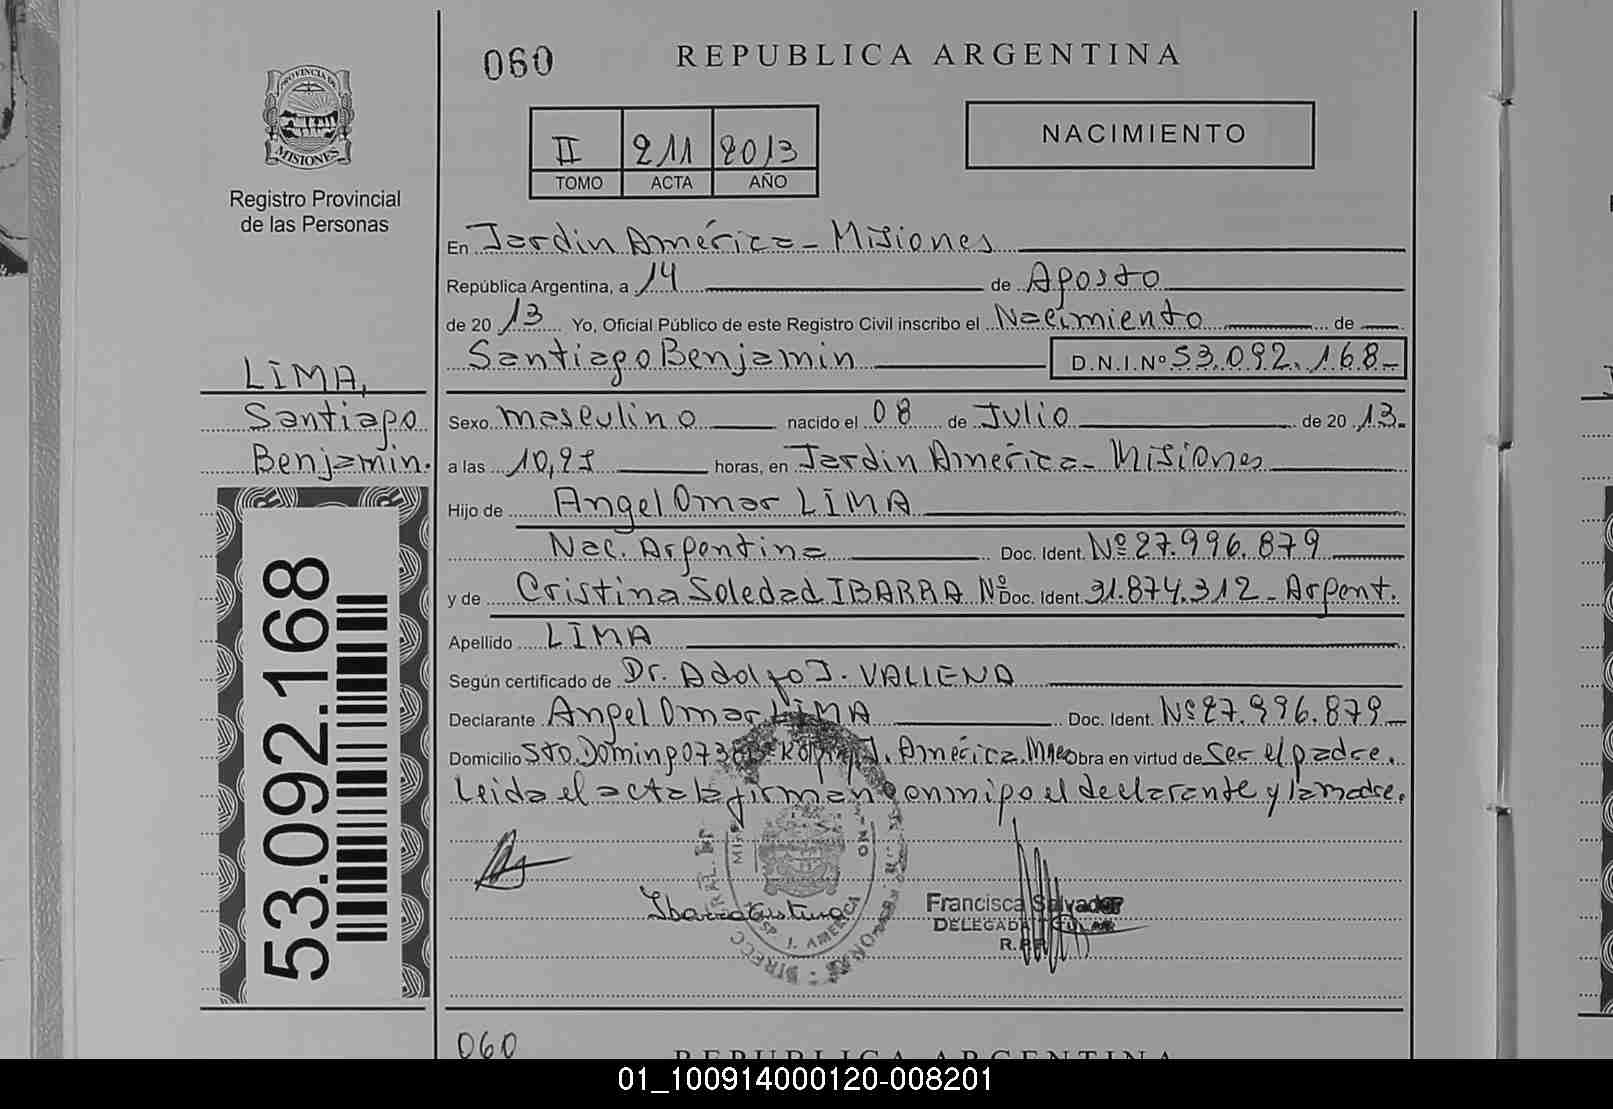 060
REPUBLICA ARGENTINA
PROVINCIA DE
MISIONES
Registro Provincial
de las Personas
II 211 2013
TOMO ACTA AÑO
NACIMIENTO
En Jardin América - Misiones
República Argentina, a 14 de Agosto
de 20 13 Yo, Oficial Público de este Registro Civil inscribo el Nacimiento de
Santiago Benjamin D.N.I. Nº 53.092.168-
LIMA,
Santiago
Benjamin.
Sexo masculino nacido el 08 de Julio de 20 13.
a las 10,25 horas, en Jardin América - Misiones
Hijo de Angel Omar LIMA
Nac. Argentina Doc. Ident. Nº 27.996.879
y de Cristina Soledad IBARRA Nº Doc. Ident. 31.874.312 - Argent.
Apellido LIMA
Según certificado de Dr. Adolfo J.
Declarante Angel Omar LIMA Doc. Ident. Nº 27.996.879-
Domicilio Sto. Domingo J. América. Obra en virtud de Ser el padre.
Leida el acta la firman conmigo el declarante y la madre.
53.092.168
Ibarra Cristina
J. AMERICA
Francisca Salvador
DELEGADA TITULAR
R.P.P.
060
REPUBLICA ARGENTINA
01_100914000120-008201